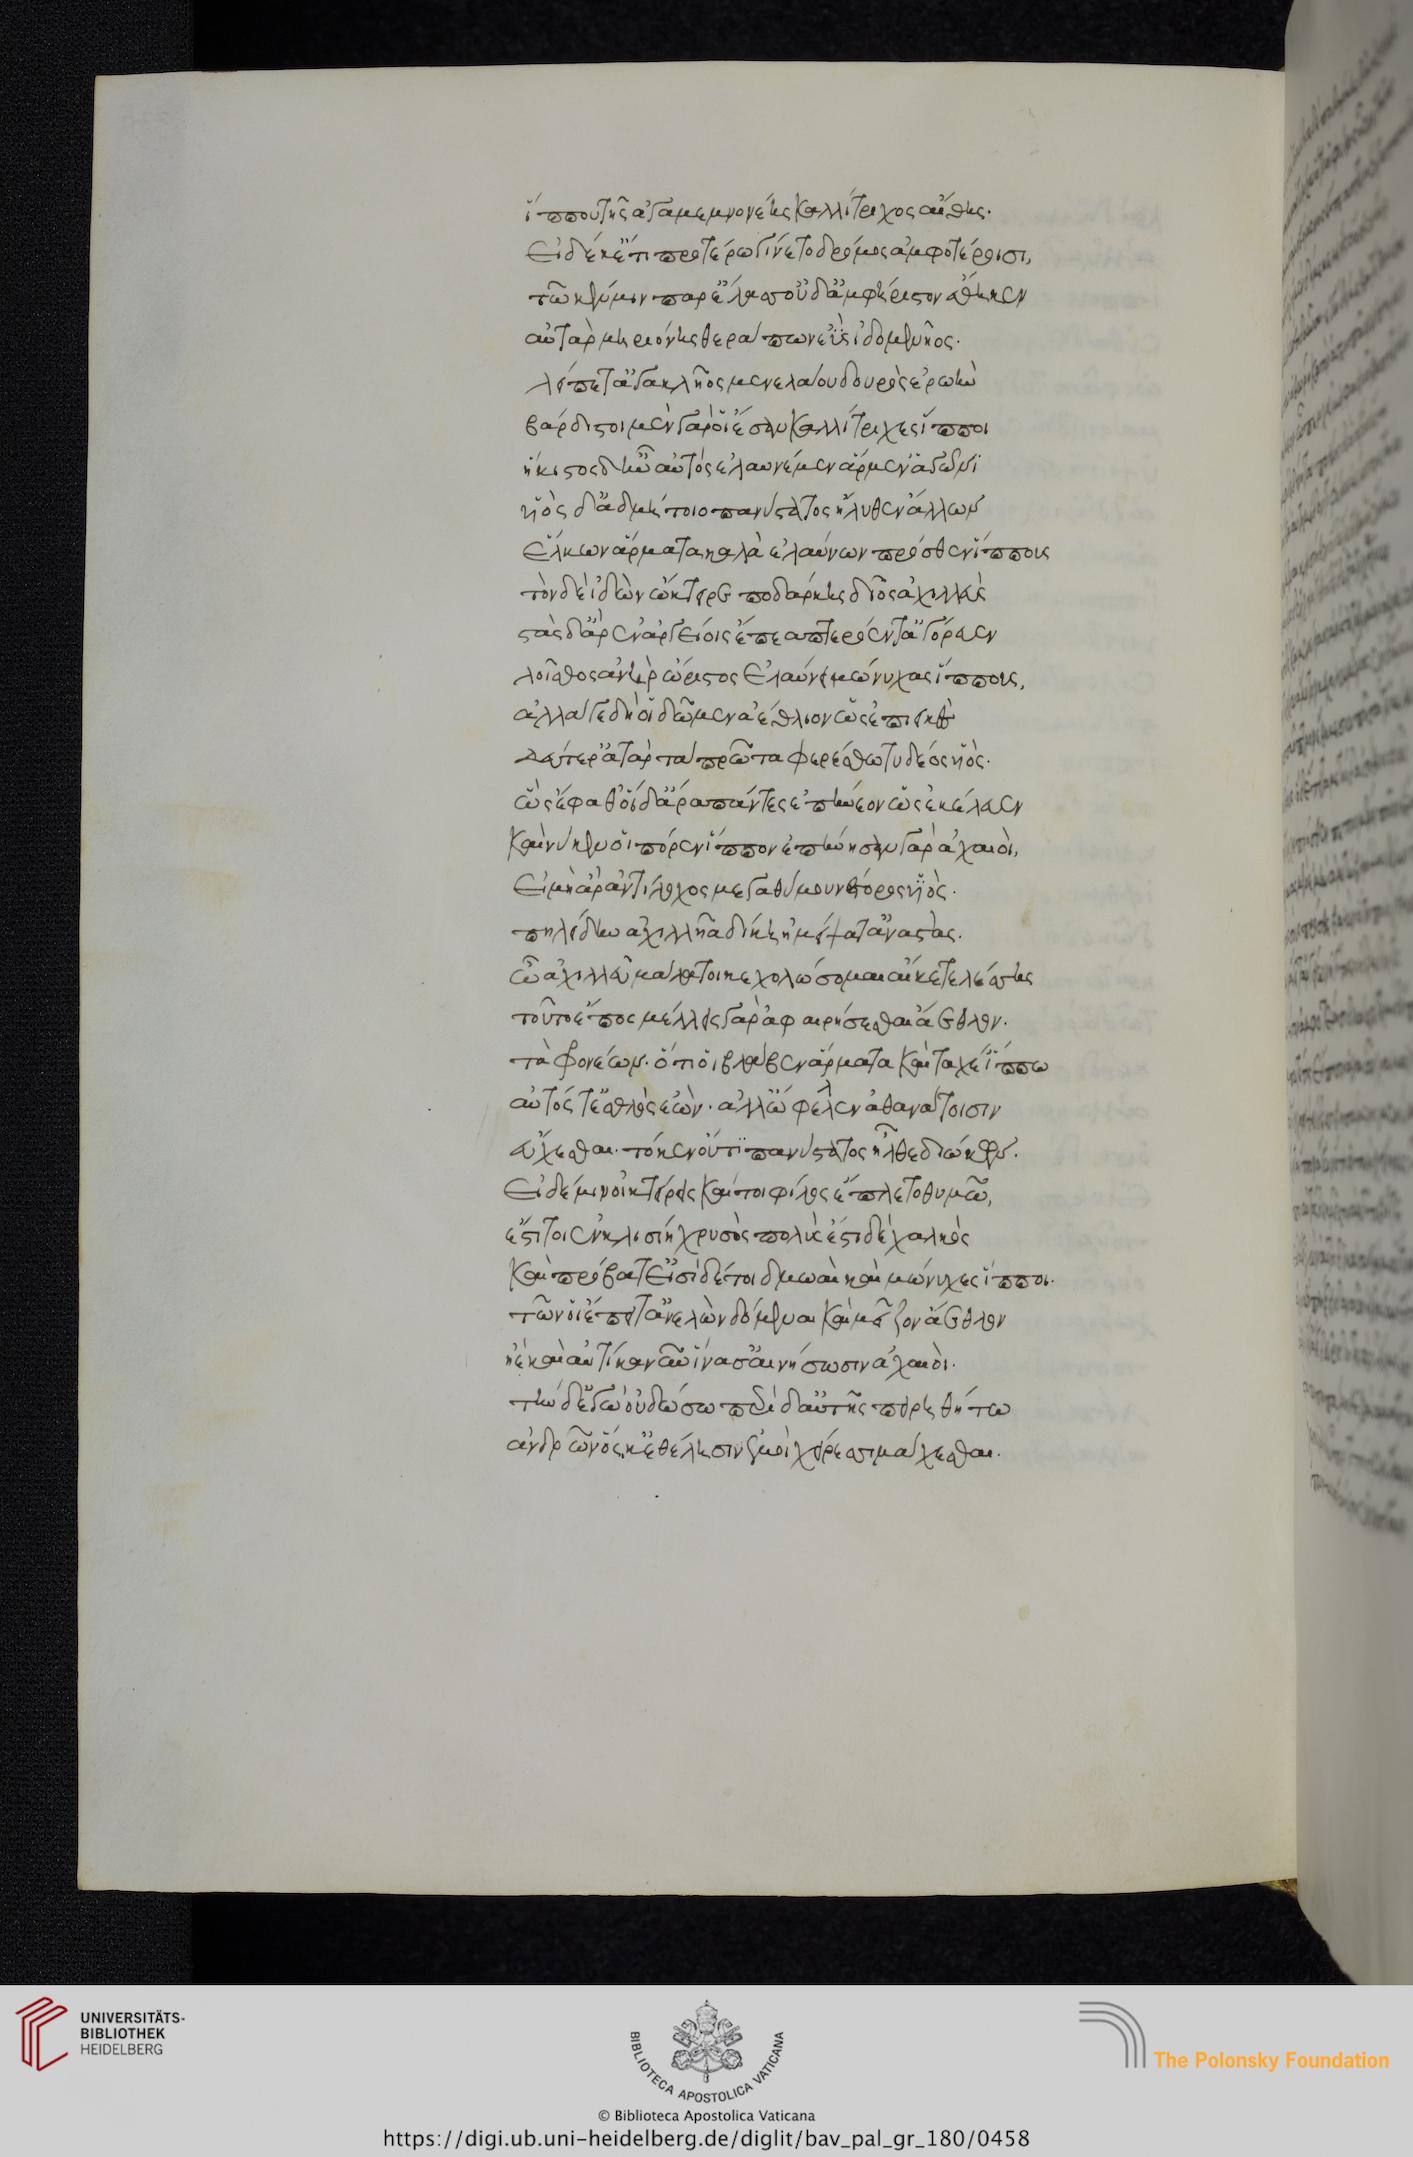 ἵππου τῆς ἀγαμεμνονέης καλλίτριχος αἴθης·
Εἰ δέ κ' ἔτι προτέρω γίνετο δρόμος ἀμφοτέροισι,
τῶ κέν μιν παρέλασσ' οὐδ' ἀμφήριστον ἔθηκεν
αὐτὰρ μηριόνης θεράπων ἐῢς ἰδομενῆος·
λείπετ' ἀγακλῆος μενελάου δουρὸς ἐρωὴν
βάρδιστοι μὲν γάρ οἱ ἔσαν καλλίτριχες ἵπποι
ἥκιστος δ' ἦν αὐτὸς ἐλαυνέμεν ἅρμ' ἐν ἀγῶνι
υἱὸς δ' ἀδμήτοιο πανύστατος ἤλυθεν ἄλλων
Ἕλκων ἅρματα καλὰ ἐλαύνων πρόσθεν ἵππους
τὸν δὲ ἰδὼν ᾤκτειρε ποδάρκης δῖος ἀχιλλεὺς
στὰς δ' ἄρ' ἐν ἀργείοις ἔπεα πτερόεντ' ἀγόρευεν
λοῖσθος ἀνὴρ ὤριστος ἐλαύνει μώνυχας ἵππους,
ἀλλ' ἄγε δή οἱ δῶμεν ἀέθλιον ὡς ἐπιεικὲς
δεύτερ' ἀτὰρ τὰ πρῶτα φερέσθω τυδέος υἱός·
ὣς ἔφαθ' οἱ δ' ἄρα πάντες ἐπῄνεον ὡς ἐκέλευεν
καί νύ κέν οἱ πόρεν ἵππον ἐπῄνησαν γὰρ ἀχαιοὶ,
Εἰ μὴ ἄρ' ἀντίλοχος μεγαθύμου νέστορος υἱὸς·
πηλείδην ἀχιλῆα δίκῃ ἠμείψατ' ἀναστάς.
ὦ ἀχιλλεῦ μάλα τοι κεχολώσομαι αἴ κε τελέσσῃς
τοῦτο ἔπος μέλλεις γὰρ ἀφαιρήσεσθαι ἄεθλον·
τὰ φρονέων· ὅτι οἱ βλάβεν ἅρματα καὶ ταχέ' ἵππω
αὐτός τ' ἐσθλὸς ἐών· ἀλλ' ὤφελεν ἀθανάτοισιν
εὔχεσθαι· τό κεν οὔτι πανύστατος ἦλθε διώκων·
Εἰ δέ μιν οἰκτείρεις καί τοι φίλος ἔπλετο θυμῶ,
ἔστι τοι ἐν κλισίη χρυσὸς πολὺς ἔστι δὲ χαλκὸς
καὶ πρόβατ' εἰσὶ δέ τοι δμωαὶ καὶ μώνυχες ἵπποι·
τῶν οἱ ἔπειτ' ἀνελὼν δόμεναι καὶ μεῖζον ἄεθλον
ἠὲ καὶ αὐτίκα νῦν ἵνα σ' αἰνήσωσιν ἀχαιοὶ·
τὴν δ' ἐγὼ οὐ δώσω περὶ δ' αὐτῆς πειρηθήτω
ἀνδρῶν ὅς κ' ἐθέλησιν ἐμοὶ χείρεσσι μάχεσθαι·
UNIVERSITÄTS-
BIBLIOTHEK
HEIDELBERG
BIBLIOTECA APOSTOLICA VATICANA
The Polonsky Foundation
© Biblioteca Apostolica Vaticana
https://digi.ub.uni-heidelberg.de/diglit/bav_pal_gr_180/0458